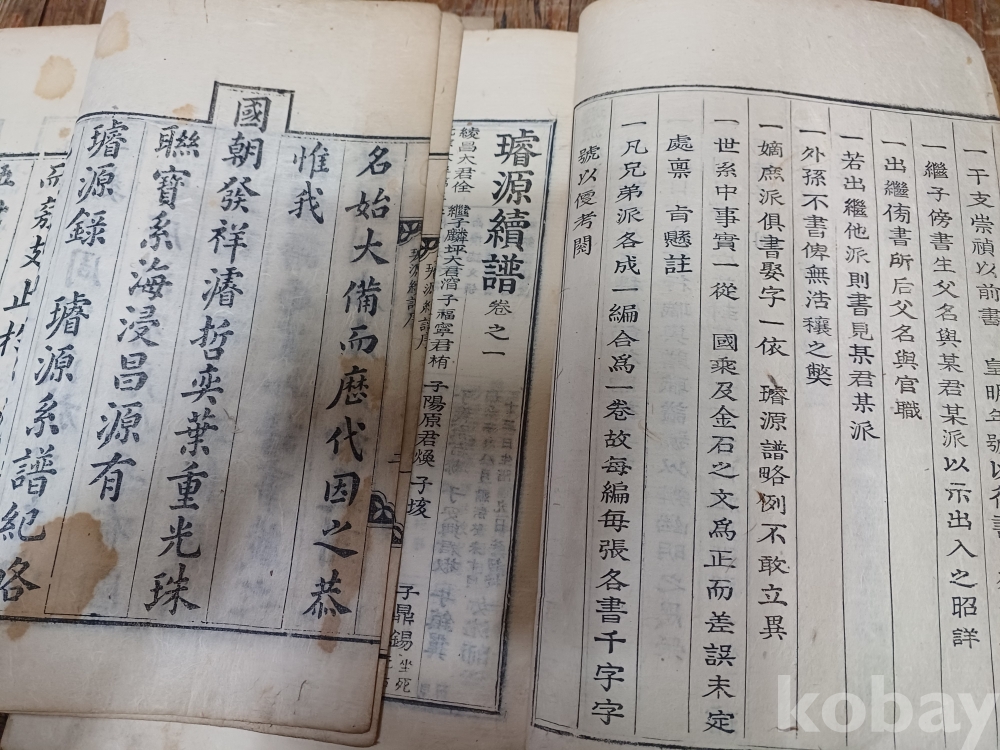 一干支崇禎以前書 皇明年號以後書
一繼子傍書生父名與某君某派以示出入之昭詳
一出繼傍書所后父名與官職
一若出繼他派則書見某君某派
一外孫不書俾無浩穰之獘
一嫡庶派俱書娶字一依 璿源譜略例不敢立異
一世系中事實一從 國乘及金石之文爲正而差誤未定
處禀 旨懸註
一凡兄弟派各成一編合爲一卷故每編每張各書千字字
號以便考閱
璿源續譜 卷之一
綾昌大君佺 繼子麟坪大君㴭子福寧君栯 子陽原君煥 子㘾
子鼎錫
名始大備而歷代因之恭
惟我
國朝發祥濬哲奕葉重光珠
聯寶系海浸昌源有
璿源録 璿源系譜紀略
而旁支
kobay